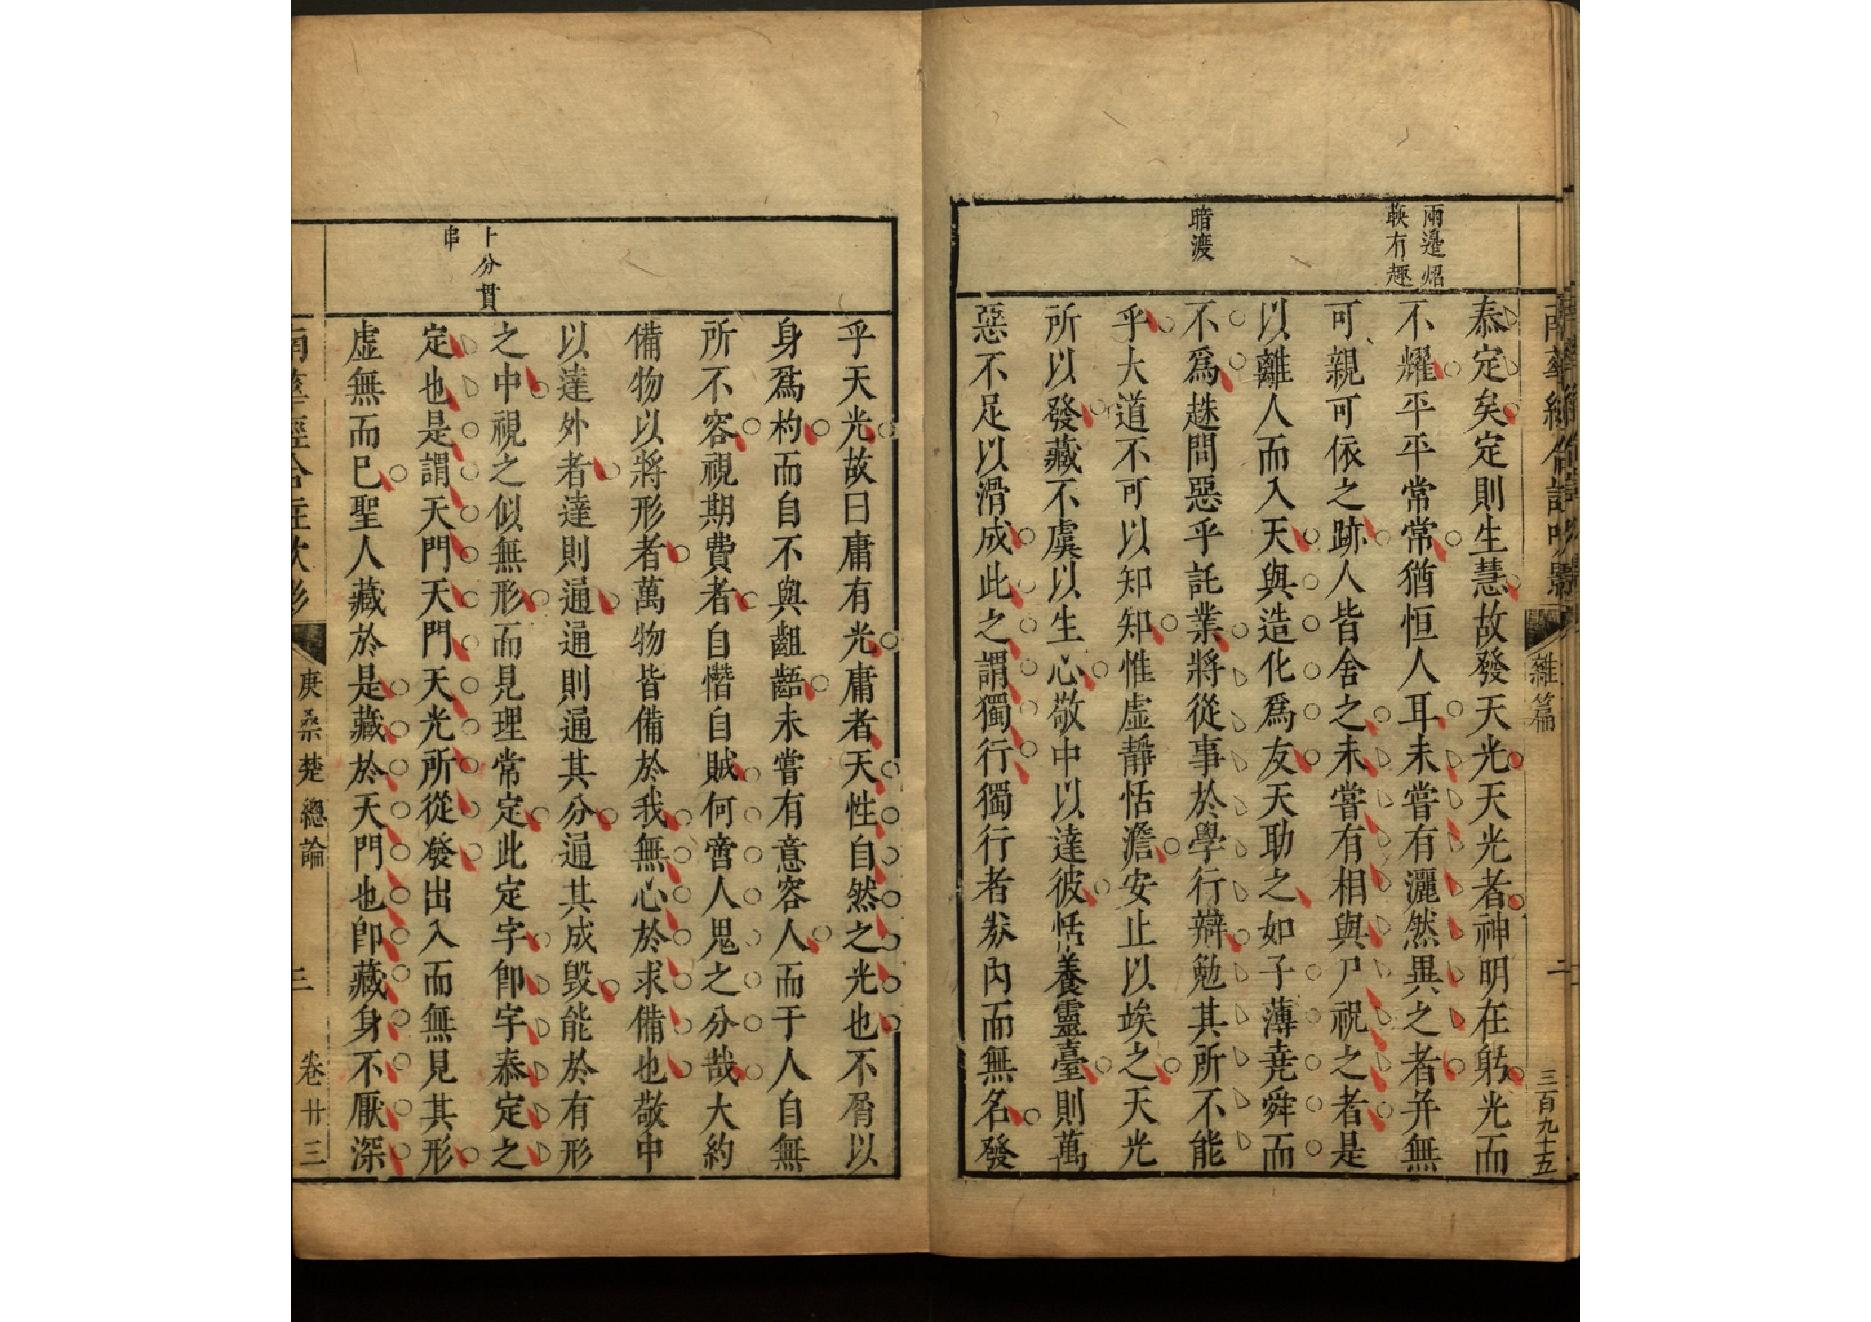 兩邊炤
暎有趣
暗渡
雜篇
二
三百九十五
泰定矣定則生慧故發天光天光者神明在躬光而
不耀平平常常猶恒人耳未嘗有灑然異之者并無
可親可依之跡人皆舍之未嘗有相與尸祝之者是
以離人而入天與造化爲友天助之如子薄堯舜而
不爲趎問惡乎託業將從事於學行辯勉其所不能
乎大道不可以知知惟虛靜恬澹安止以埃之天光
所以發藏不虞以生心敬中以達彼恬養靈臺則萬
惡不足以滑成此之謂獨行獨行者券內而無名發
上分貫
串
乎天光故曰庸有光庸者天性自然之光也不屑以
身爲杓而自不與齟齬未嘗有意容人而于人自無
所不容視期費者自憯自賊何啻人鬼之分哉大約
備物以將形者萬物皆備於我無心於求備也敬中
以達外者達則通通則通其分通其成毀能於有形
之中視之似無形而見理常定此定字卽宇泰定之
定也是謂天門天門天光所從發出入而無見其形
虛無而已聖人藏於是藏於天門也卽藏身不厭深
南華經合註吹影
庚桑楚總論
三
卷廿三